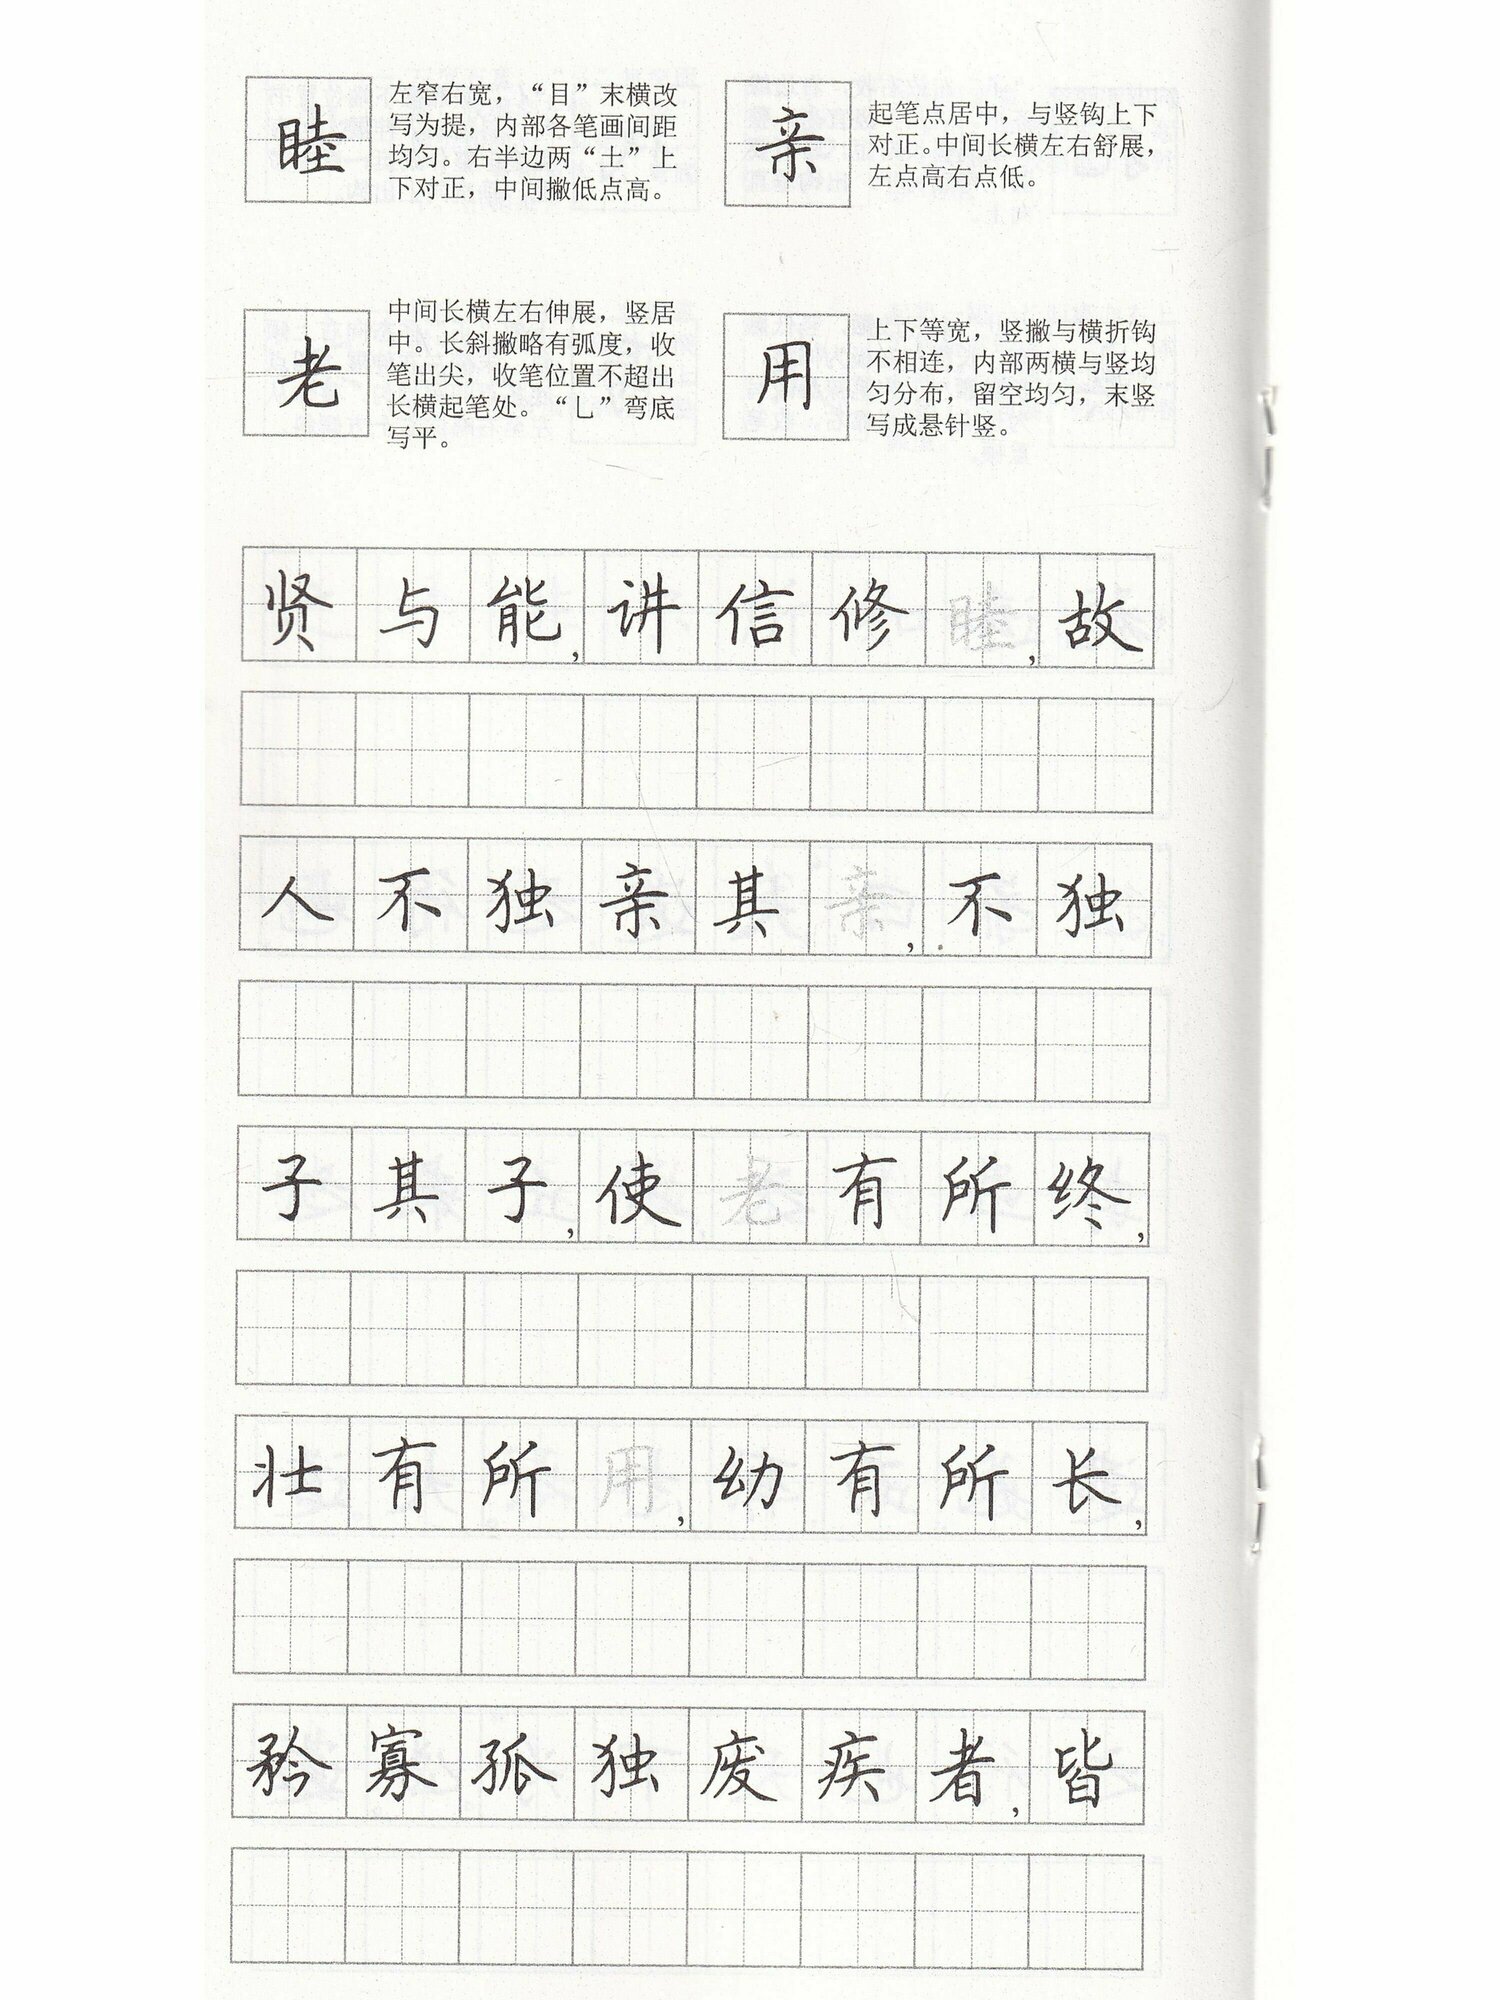 睦
左窄右宽，“目”末横改
写为提，内部各笔画间距
均匀。右半边两“土”上
下对正，中间撇低点高。
亲
起笔点居中，与竖钩上下
对正。中间长横左右舒展，
左点高右点低。
老
中间长横左右伸展，竖居
中。长斜撇略有弧度，收
笔出尖，收笔位置不超出
长横起笔处。“乚”弯底
写平。
用
上下等宽，竖撇与横折钩
不相连，内部两横与竖均
匀分布，留空均匀，末竖
写成悬针竖。
贤与能，讲信修睦，故
人不独亲其亲，不独
子其子，使老有所终，
壮有所用，幼有所长，
矜寡孤独废疾者，皆